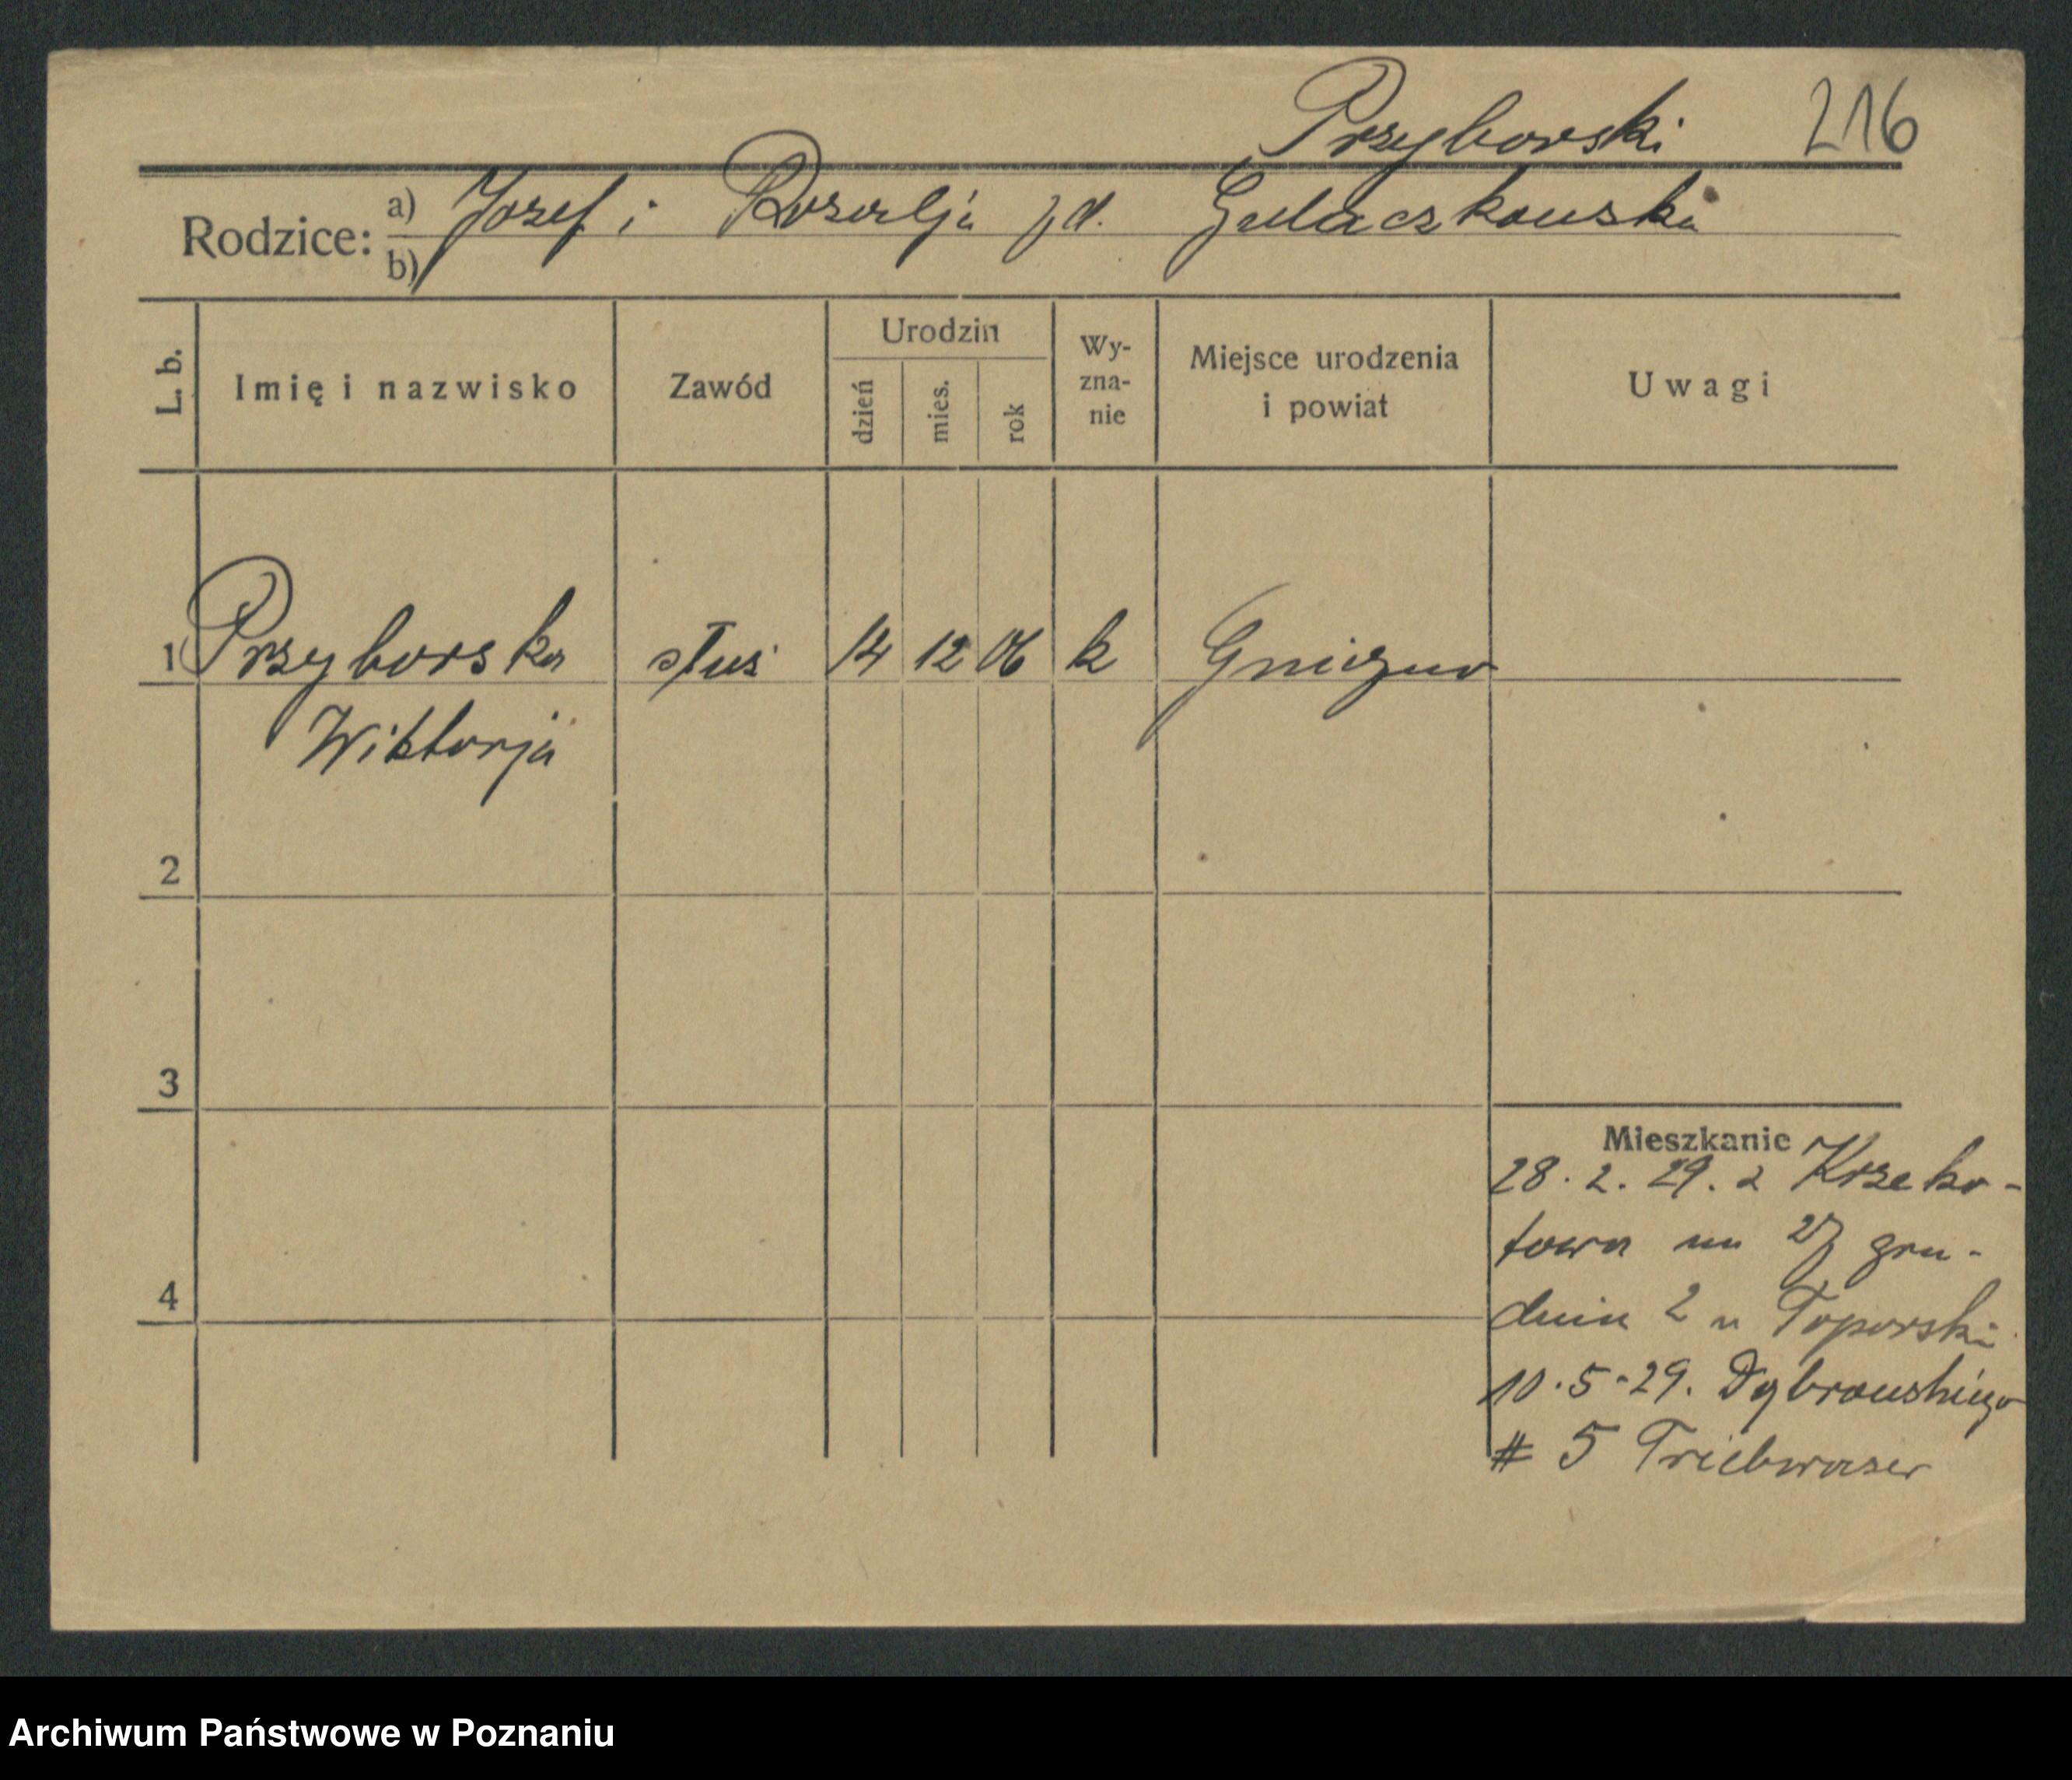 Przyborski 216
Rodzice: a) Jozef i Rozalja zd. Gulaczkowska
b)
L. b. Imię i nazwisko Zawód Urodzin dzień mies. rok Wy-zna-nie Miejsce urodzenia i powiat Uwagi
1 Przyborska służ 14 12 06 k Gniezno
Wiktorja
2
3
Mieszkanie
28. 2. 29. z Krzeko-
towa na 27 gru-
4
dnia 2 u Toporski
10.5-29. Dąbrowskiego
# 5 Triebwaser
Archiwum Państwowe w Poznaniu